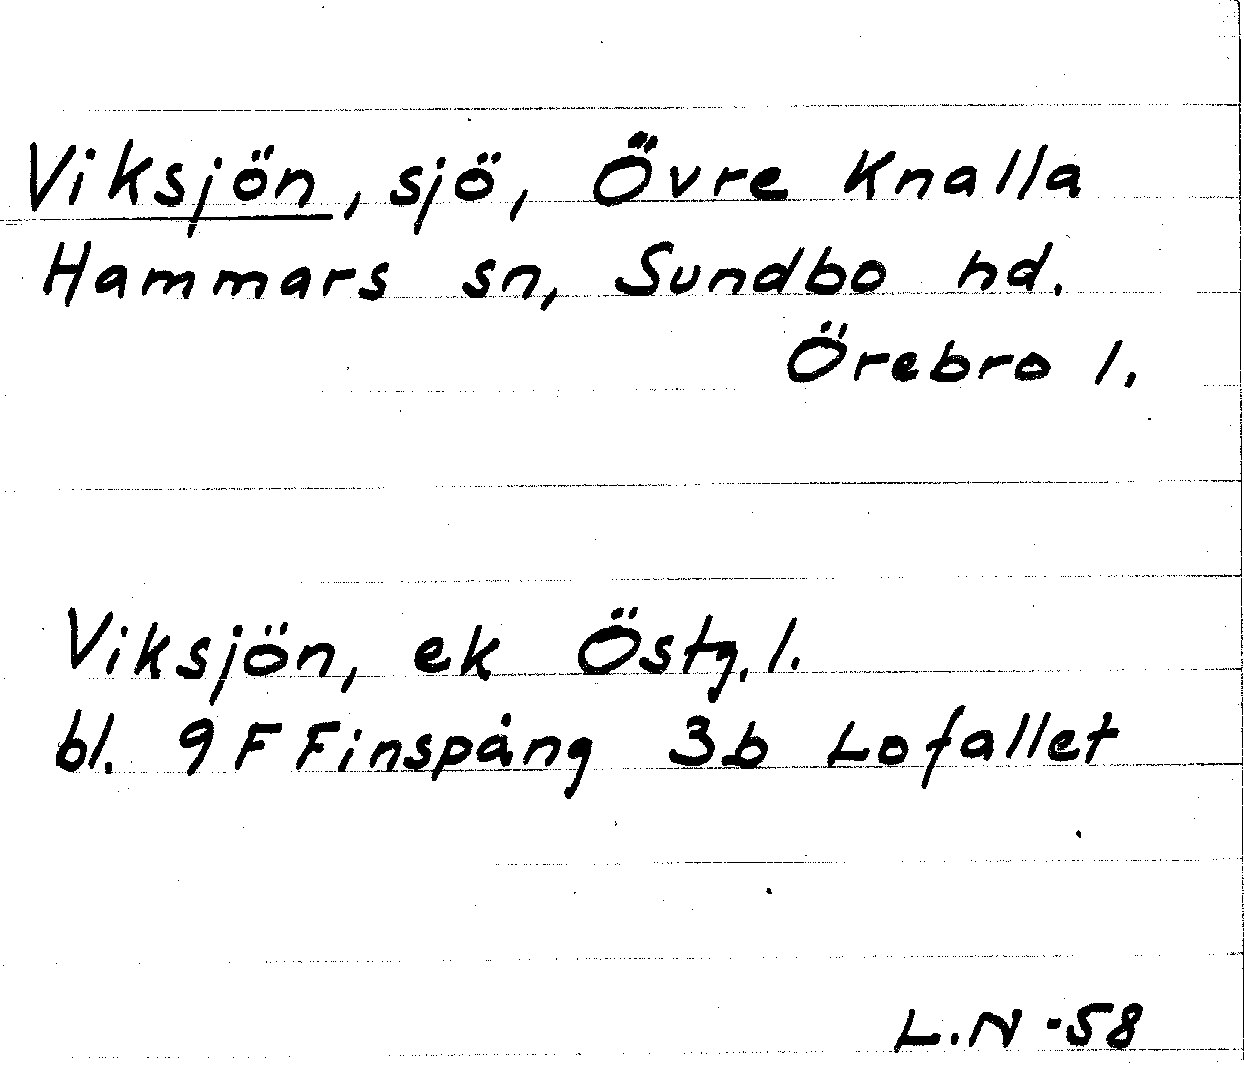 Viksjön, sjö, Övre Knalla
Hammars sn, Sundbo hd.
Örebro l.
Viksjön, ek Östg. l.
bl. 9 F Finspång 3b Lofallet
L.N -58